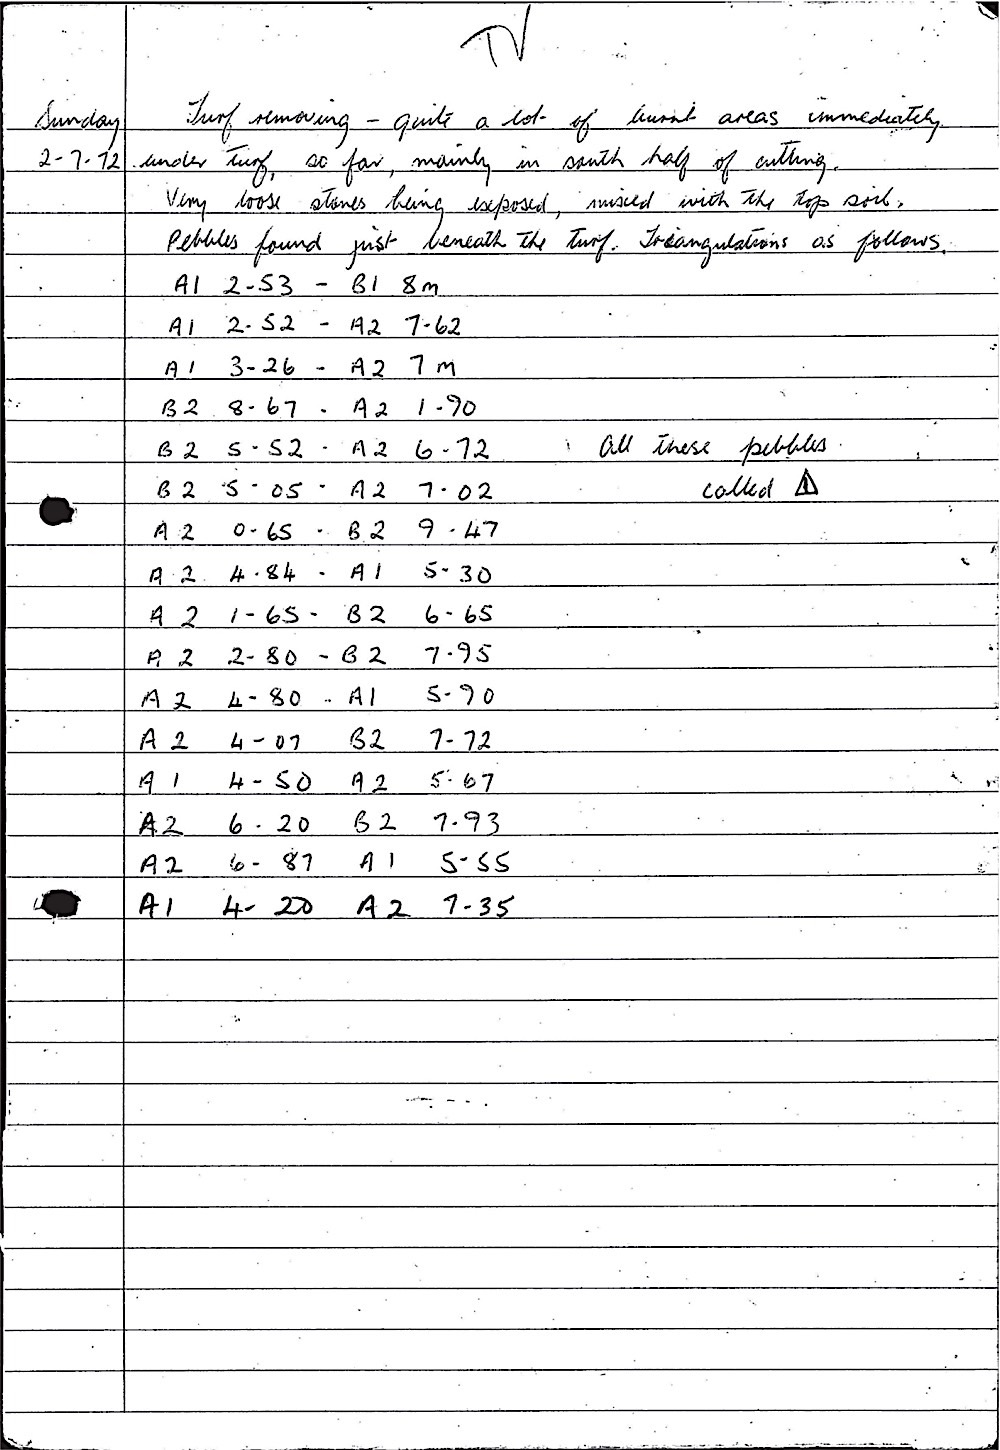 TV
Sunday Turf removing - quite a lot of burnt areas immediately
2-7-72 under turf, so far, mainly in south half of cutting.
Very loose stones being exposed, mixed with the top soil.
Pebbles found just beneath the turf. Triangulations as follows.
A1 2-53 - B1 8m
A1 2-52 - A2 7-62
A1 3-26 - A2 7m
B2 8-67 - A2 1-90
B2 5-52 - A2 6-72 All these pebbles
B2 5-05 - A2 7-02 called
A2 0-65 - B2 9-47
A2 4-84 - A1 5-30
A2 1-65 - B2 6-65
A2 2-80 - B2 7-95
A2 4-80 - A1 5-90
A2 4-07 B2 7-72
A1 4-50 A2 5-67
A2 6-20 B2 7-93
A2 6-87 A1 5-55
A1 4-20 A2 7-35